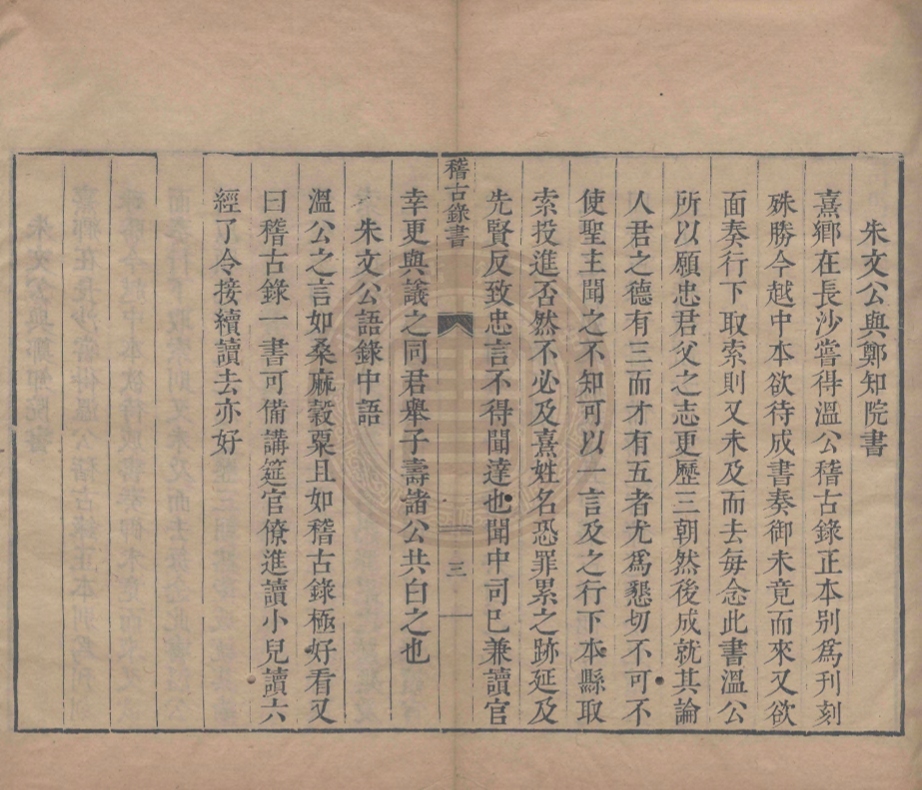 朱文公與鄭知院書
熹鄉在長沙嘗得溫公稽古錄正本别爲刊刻
殊勝今越中本欲待成書奏御未竟而來又欲
面奏行下取索則又未及而去每念此書溫公
所以願忠君父之志更歷三朝然後成就其論
人君之德有三而才有五者尤爲懇切不可不
使聖主聞之不知可以一言及之行下本縣取
索投進否然不必及熹姓名恐罪累之跡延及
先賢反致忠言不得聞達也聞中司已兼讀官
稽古錄書
三
幸更與議之同君舉子壽諸公共白之也
朱文公語錄中語
溫公之言如桑麻穀粟且如稽古錄極好看又
曰稽古錄一書可備講筵官僚進讀小兒讀六
經了令接續讀去亦好